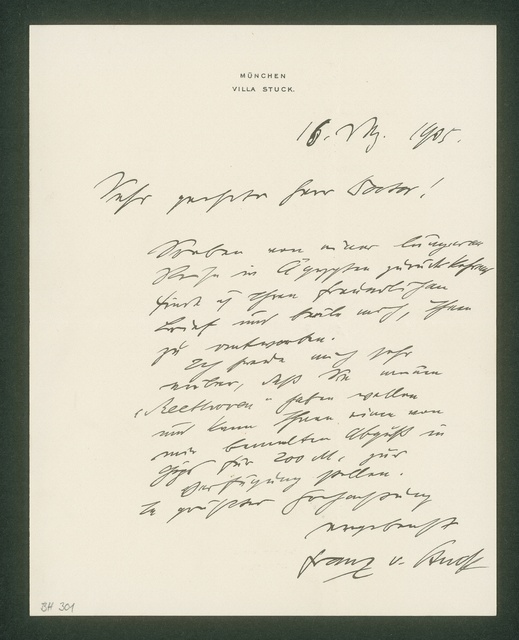 MÜNCHEN
VILLA STUCK.
16. 1905.
Sehr geehrter Herr Doctor!
Soeben von einer längeren
Reise in Ägypten zurückkehrend
finde ich Ihren freundlichen
Brief und beeile mich, Ihnen
zu antworten.
Ich freue mich sehr
darüber, daß Sie meinen
„Beethoven" haben wollen
und kann Ihnen einen von
mir bemalten Abguß in
Gips für 200 M. zur
Verfügung stellen.
In größter Hochachtung
ergebenst
Franz v. Stuck
BH 301